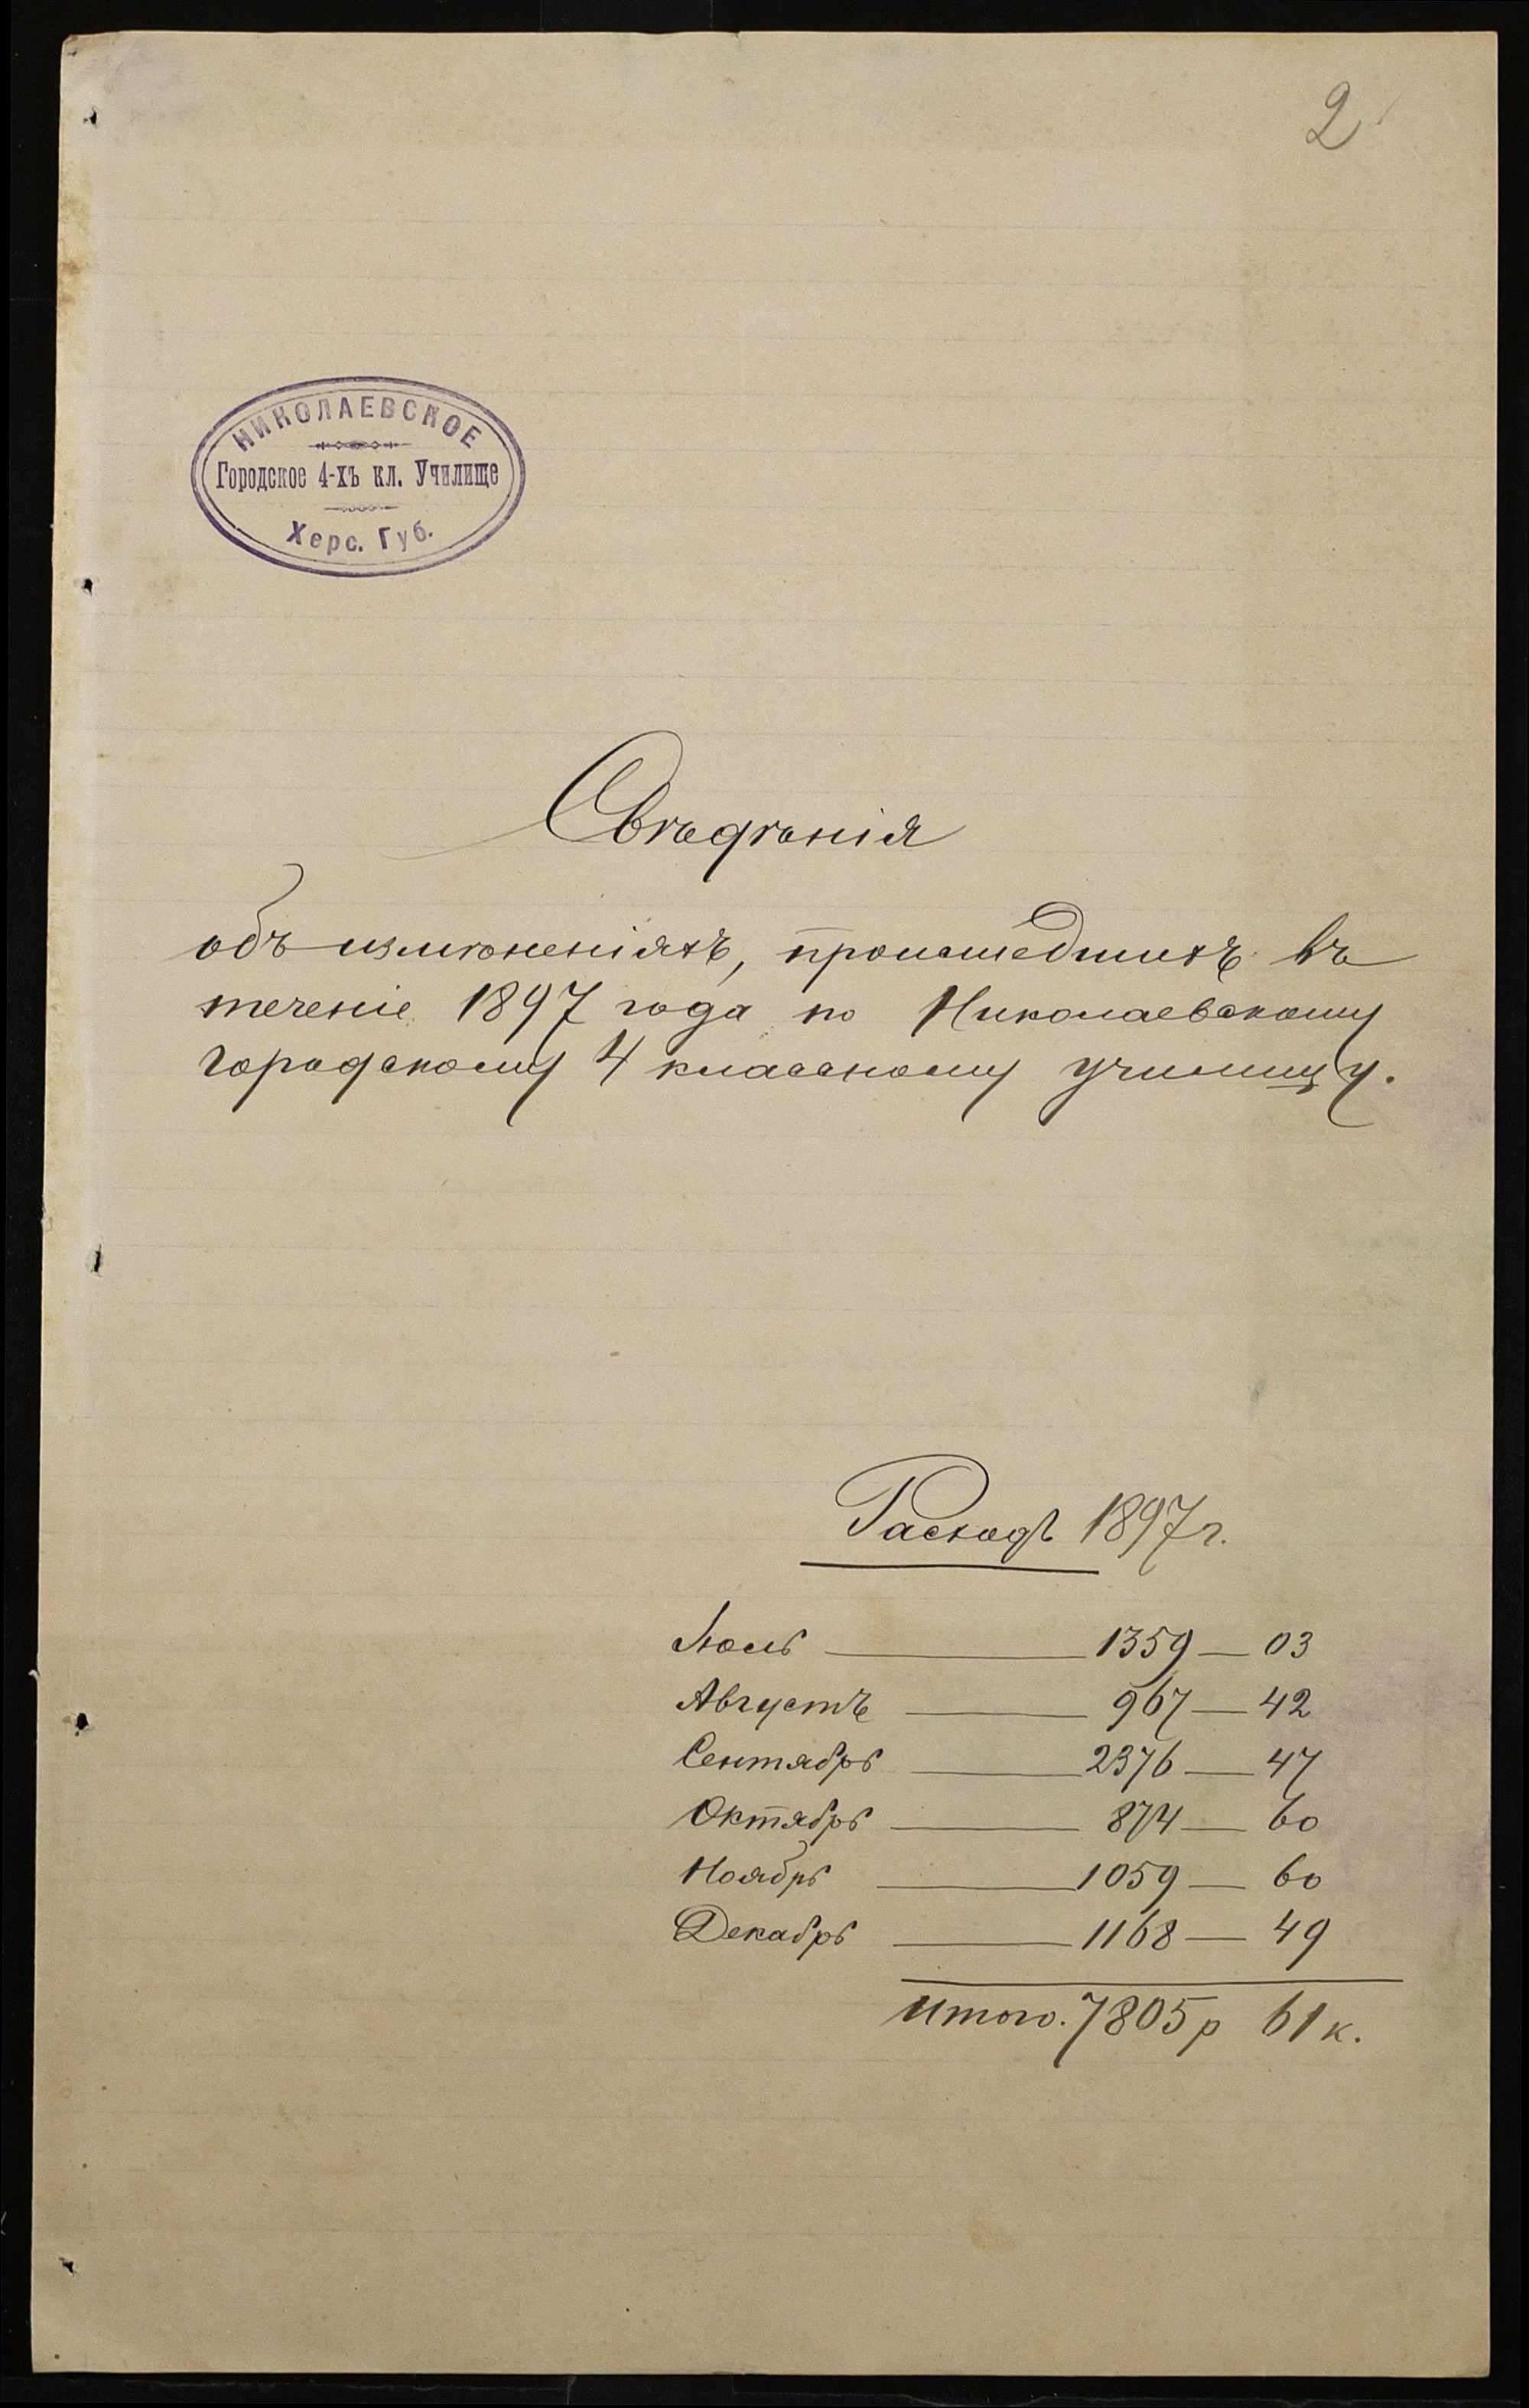 2
НИКОЛАЕВСКОЕ
Городское 4-хъ кл. Училище
Херс. Губ.
Свѣдѣнія
объ измѣненіяхъ, происшедшихъ въ
теченіе 1897 года по Николаевскому
городскому 4 классному училищу.
Расходъ 1897 г.
Іюль — 1359 — 03
Августъ — 967 — 42
Сентябрь — 2376 — 47
Октябрь — 874 — 60
Ноябрь — 1059 — 60
Декабрь — 1168 — 49
Итого. 7805 р 61 к.